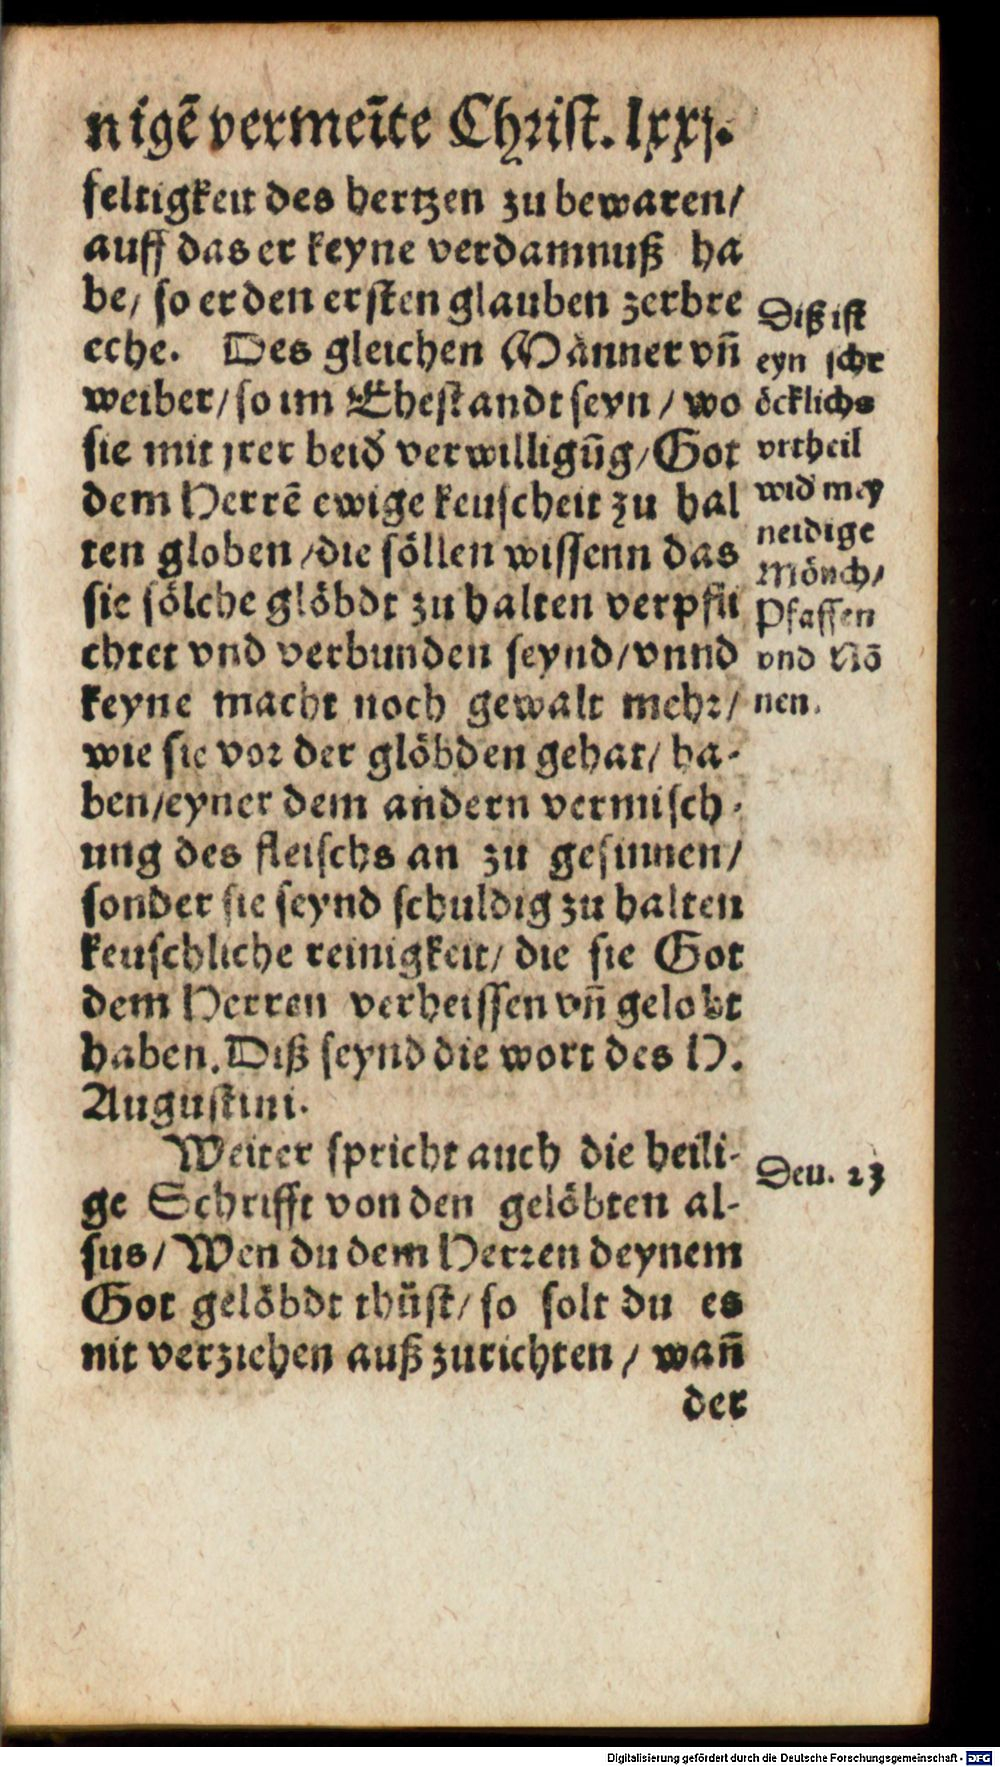 nigē vermeīte Christ. lxxj.
feltigkeit des hertzen zu bewaren/
auff das er keyne verdamnuß ha
be/ so er den ersten glauben zerbre
eche. Des gleichen Männer vn̄
weiber/ so im Ehestandt seyn/ wo
sie mit jrer beid verwilligūg/ Got
dem Herrē ewige keuscheit zu hal
ten globen/ die söllen wissenn das
sie sölche glöbdt zu halten verpfli
chtet vnd verbunden seynd/ vnnd
keyne macht noch gewalt mehr/
wie sie vor der glöbden gehat/ ha-
ben/ eyner dem andern vermisch-
ung des fleischs an zu gesinnen/
sonder sie seynd schuldig zu halten
keuschliche reinigkeit/ die sie Got
dem Herren verheissen vn̄ gelobt
haben. Diß seynd die wort des H.
Augustini.
Weiter spricht auch die heili-
ge Schrifft von den gelöbten al-
sus/ Wen du dem Herren deynem
Got gelöbdt thüst/ so solt du es
nit verziehen auß zurichten/ wan̄
der
Diß ist
eyn schr
öcklichs
vrtheil
wid mey
neidige
Mönch/
Pfaffen
vnd Nō
nen.
Deu. 23
Digitalisierung gefördert durch die Deutsche Forschungsgemeinschaft - DFG